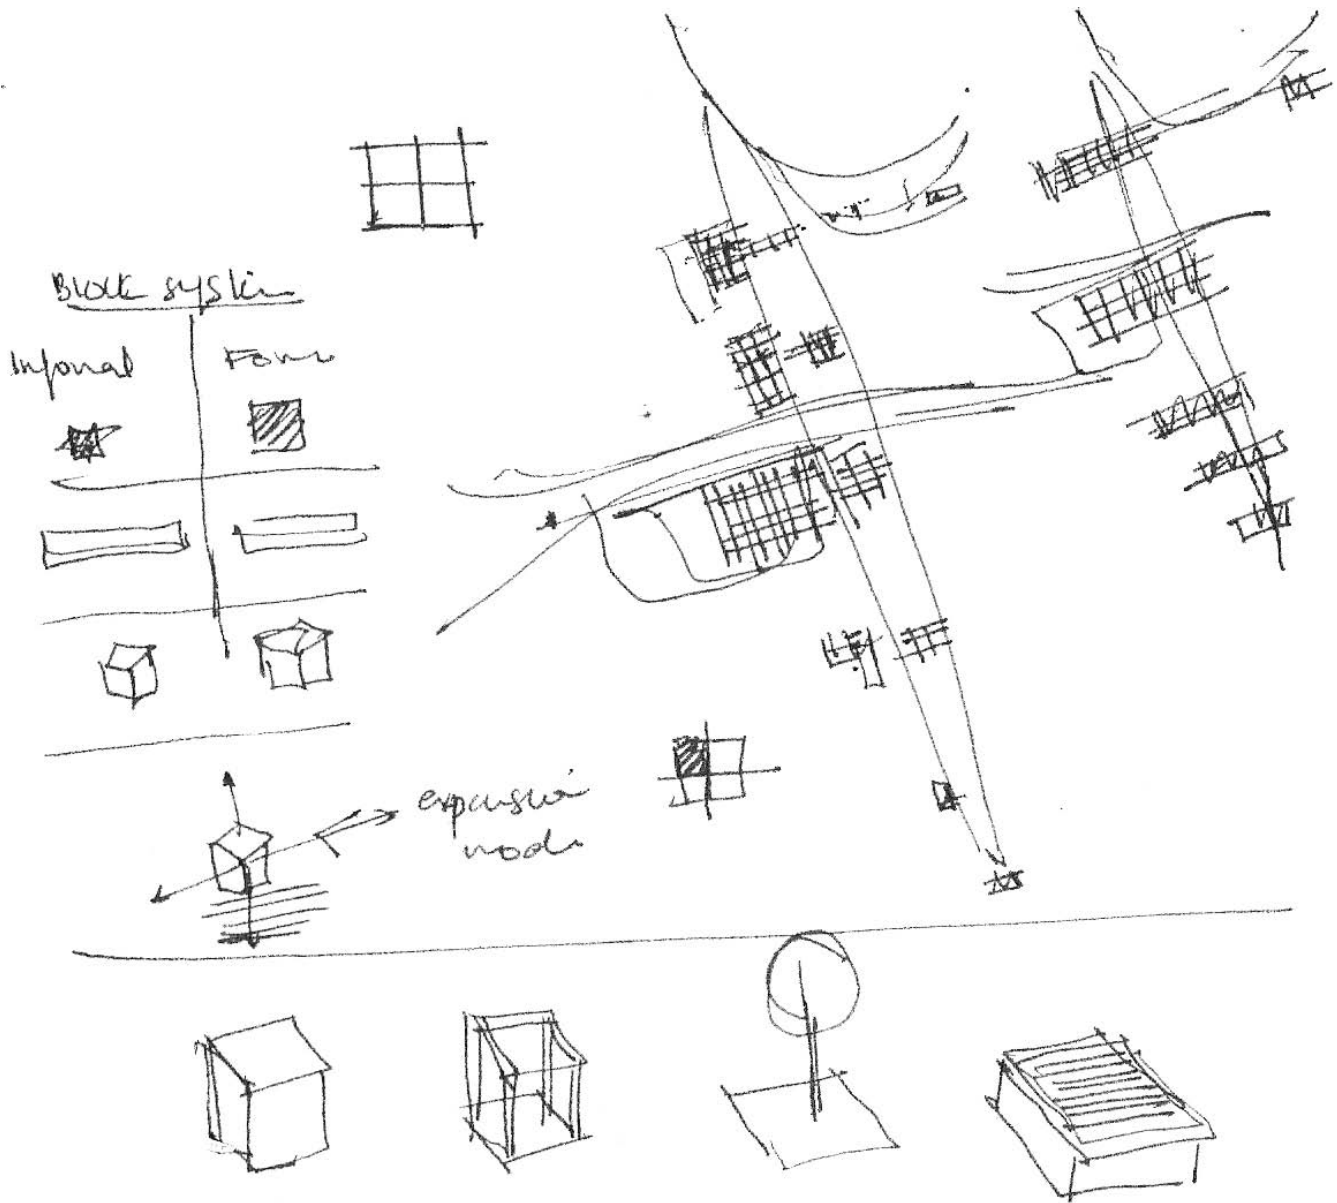 Block system
Informal
Formal
expansion
node